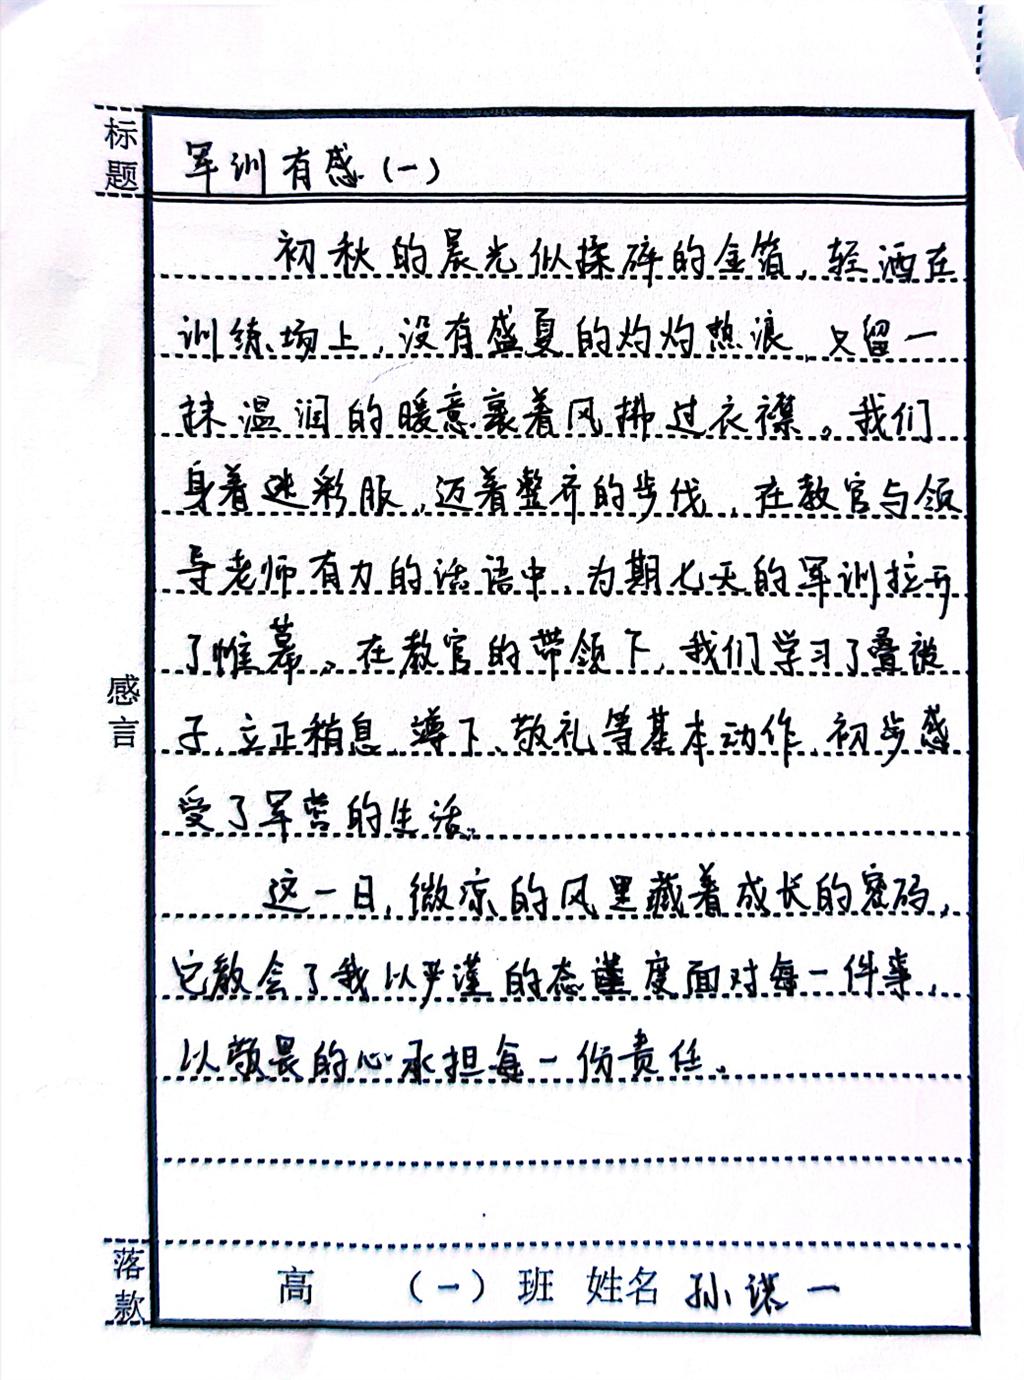 标题
军训有感(一)
初秋的晨光似揉碎的金箔,轻洒在
训练场上,没有盛夏的灼灼热浪,只留一
抹温润的暖意裹着风拂过衣襟。我们
身着迷彩服,迈着整齐的步伐,在教官与领
导老师有力的话语中,为期七天的军训拉开
了帷幕。在教官的带领下,我们学习了叠被
子、立正稍息、蹲下、敬礼等基本动作,初步感
受了军营的生活。
感言
这一日,微凉的风里藏着成长的密码,
它教会了我以严谨的态度面对每一件事,
以敬畏的心承担每一份责任。
落款
高 (一) 班 姓名 孙诺一